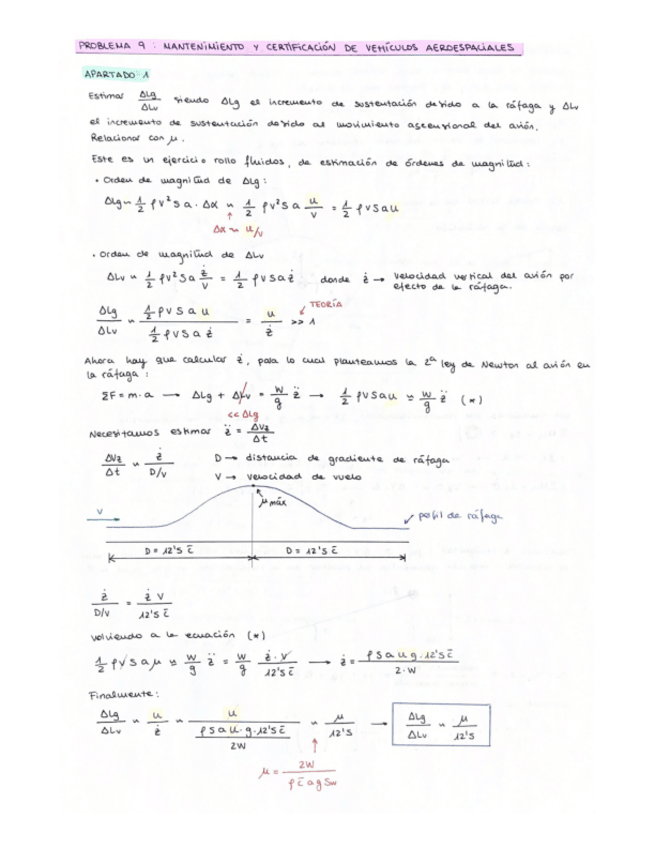 PROBLEMA 9 : MANTENIMIENTO Y CERTIFICACIÓN DE VEHÍCULOS AEROESPACIALES
APARTADO 1
Estimar ΔLg/ΔLv siendo ΔLg el incremento de sustentación debido a la ráfaga y ΔLv
el incremento de sustentación debido al movimiento ascensional del avión.
Relacionar con μ.
Este es un ejercicio rollo fluidos, de estimación de órdenes de magnitud:
• Orden de magnitud de ΔLg:
ΔLg ~ 1/2 ρv²Sa·Δα ~ 1/2 ρv²Sa u/v = 1/2 ρvSau
↑
Δα ~ u/v
• Orden de magnitud de ΔLv
ΔLv ~ 1/2 ρv²Sa ż/v = 1/2 ρvSaż donde ż → velocidad vertical del avión por
efecto de la ráfaga.
TEORÍA
ΔLg/ΔLv ~ (1/2 ρvSau)/(1/2 ρvSaż) = u/ż >> 1
Ahora hay que calcular ż, para lo cual planteamos la 2ª ley de Newton al avión en
la ráfaga:
ΣF = m·a → ΔLg + ΔLv = W/g z̈ → 1/2 ρvSau ≃ W/g z̈ (*)
<< ΔLg
Necesitamos estimar z̈ = ΔVz/Δt
ΔVz/Δt ~ ż/(D/v) D → distancia de gradiente de ráfaga
V → velocidad de vuelo
μ máx
V
perfil de ráfaga
D = 12'5 c̄ D = 12'5 c̄
ż/(D/v) = ż v/(12'5 c̄)
Volviendo a la ecuación (*)
1/2 ρvSaμ ≃ W/g z̈ = W/g ż·v/(12'5 c̄) → ż = ρSaug·12'5c̄/(2·W)
Finalmente:
ΔLg/ΔLv ~ u/ż ~ u/(ρSau·g·12'5c̄/2W) ~ μ/12'5 → ΔLg/ΔLv ~ μ/12'5
↑
μ = 2W/(ρc̄agSw)